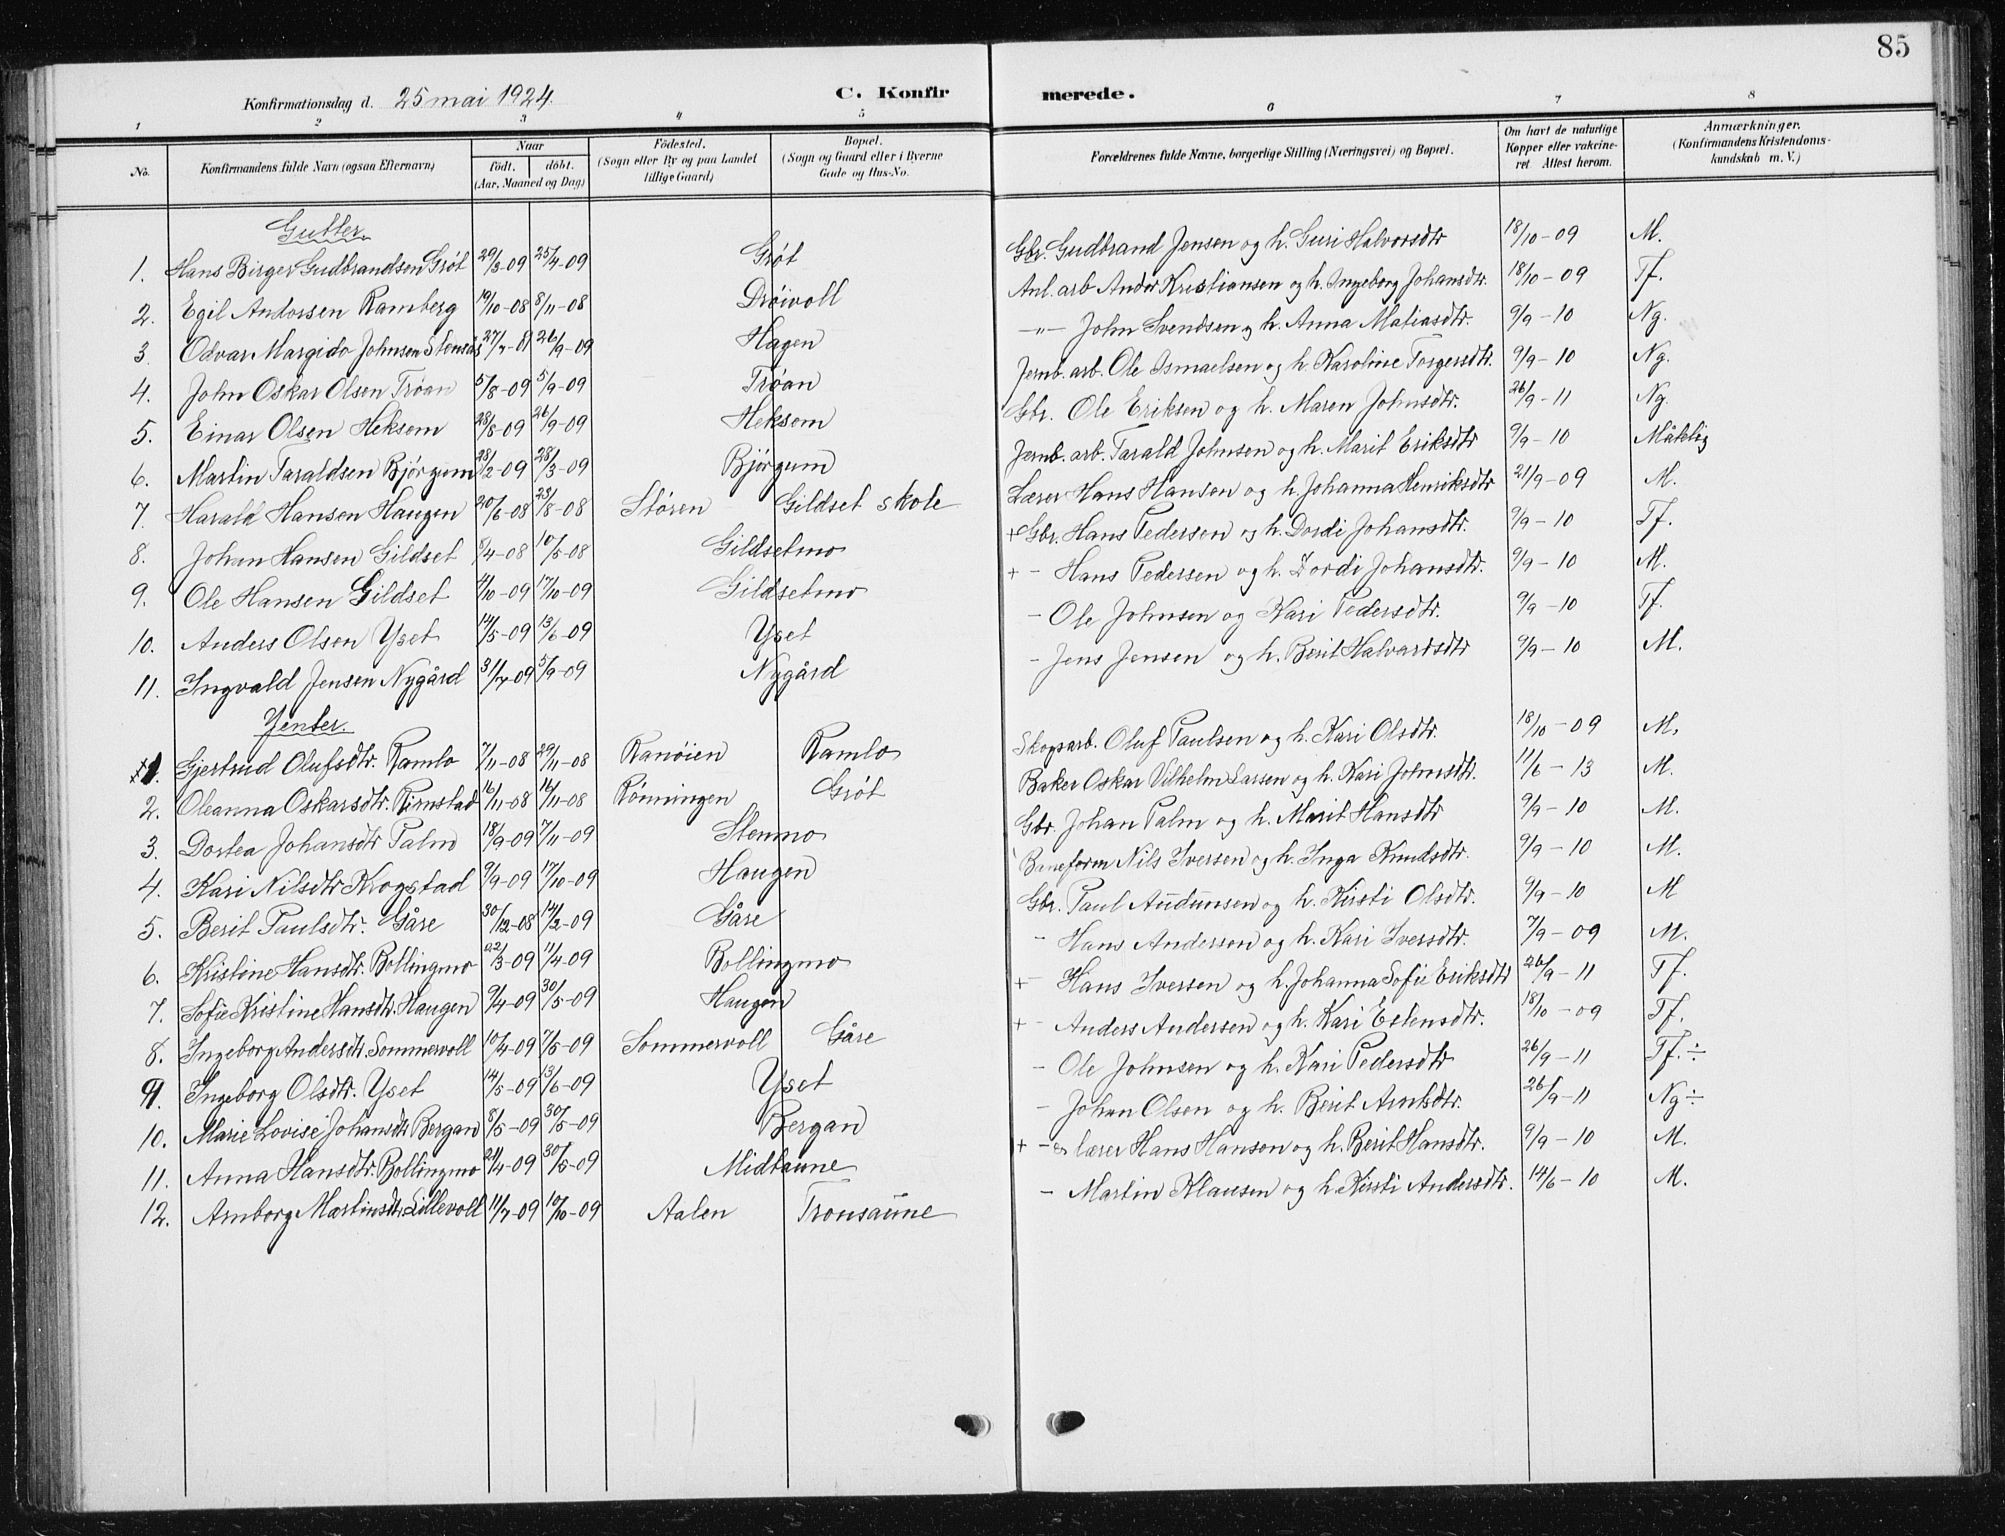 85
Konfirmationsdag d. 25 mai 1924. C. Konfirmerede.
1 2 3 4 5 6 7 8
No. Konfirmandens fulde Navn (ogsaa Efternavn) Naar født. døbt. (Aar, Maaned og Dag) Fødested. (Sogn eller By og paa Landet tillige Gaard) Bopæl. (Sogn og Gaard eller i Byerne Gade og Hus-No. Forældrenes fulde Navne, borgerlige Stilling (Næringsvei) og Bopæl. Om havt de naturlige Kopper eller vakcineret Attest herom. Anmærkninger. (Konfirmandens Kristendomskundskab m. V.)
Gutter.
1. Hans Birger Gudbrandsen Grøt 29/3-09 25/4-09 Grøt Gbr. Gudbrand Jensen og h. Guri Halvorsdtr 18/10-09 M.
2. Egil Andorsen Ramberg 19/10-08 8/11-08 Drøivoll Anl. arb Andor Kristiansen og h. Ingeborg Johansdtr. 18/10-09 Tf.
3. Odvar Margido Johnsen 26/9-09 Hagen -"- John Svendsen og h. Anna Matiasdtr. 9/9-10 Ng.
4. John Oskar Olsen Trøan 5/8-09 5/9-09 Trøan Jernb. arb. Ole Ismaelsen og h. Karoline Torgersdtr. 9/9-10 Ng.
5. Einar Olsen Heksem 28/8-09 26/9-09 Heksem Gbr. Ole Eriksen og h. Maren Johnsdtr. 26/9-11 Ng.
6. Martin Taraldsen Bjørgum 28/2-09 28/3-09 Bjørgum Jernb. arb. Tarald Johnsen og h. Marit Eriksdtr 9/9-10 Måtelig
7. Harald Hansen Haugen 20/6-08 23/8-08 Støren Gildset skole Lærer Hans Hansen og h. Johanna Henriksdtr 21/9-09 M.
8. Johan Hansen Gildset 8/4-08 10/5-08 Gildsetmo + Gbr. Hans Pedersen og h. Dordi Johansdtr. 9/9-10 Tf.
9. Ole Hansen Gildset 4/10-09 17/10-09 Gildsetmo + - Hans Pedersen og h. Dordi Johansdtr. 9/9-10 M.
10. Anders Olsen Yset 14/5-09 13/6-09 Yset - Ole Johnsen og Kari Pedersdtr. 9/9-10 Tf.
11. Ingvald Jensen Nygård 31/7-09 5/9-09 Nygård - Jens Jensen og h. Berit Halvardsdtr 9/9-10 M.
Jenter.
1. Gjertrud Olufsdtr. Ramlo 7/11-08 29/11-08 Ranøien Ramlo Skogsarb. Oluf Paulsen og h. Kari Olsdtr. 18/10-09 M.
2. Oleanna Oskarsdtr. Rimstad 16/11-08 Rønningen Grøt Baker Oskar Vilhelm Larsen og h. Kari Johnsdtr. 11/6-13 M.
3. Dortea Johansdtr Palm 18/9-09 7/11-09 Stenmo Gbr. Johan Palm og h. Marit Hansdtr 9/9-10 M.
4. Kari Nilsdtr Krogstad 9/9-09 17/10-09 Haugen Baneform Nils Iversen og h. Inga Knudsdtr. 9/9-10 M.
5. Berit Paulsdtr. Gåre 30/12-08 14/2-09 Gåre Gbr. Paul Audunsen og h. Kirsti Olsdtr. 9/9-10 M
6. Kristine Hansdtr. Bollingmo 22/3-09 11/4-09 Bollingmo - Hans Andersen og h. Kari Iversdtr. 7/9-09 M.
7. Sofie Kristine Hansdtr. Haugen 9/4-09 30/5-09 Haugen + - Hans Iversen og h. Johanna Sofie Eriksdtr 26/9-11 Tf.
8. Ingeborg Andersdtr. Sommervoll 10/4-09 7/5-09 Sommervoll Gåre + - Anders Andersen og h. Kari Estensdtr. 18/10-09 Tf.
9. Ingeborg Olsdtr. Yset 14/5-09 13/6-09 Yset - Ole Johnsen og h. Kari Pedersdtr 26/9-11 Tf. ÷
10. Marie Lovise Johansdtr Bergan 8/5-09 30/5-09 Bergan - Johan Olsen og h. Berit Arntsdtr. 26/9-11 Ng ÷
11. Anna Hansdtr. Bollingmo 30/5-09 Midtaune + - og lærer Hans Hansen og h. Berit Hansdtr. 9/9-10 M.
12. Arnborg Martinsdtr Lillevoll 11/7-09 10/10-09 Aalen Tronsaune - Martin Klausen og h Kirsti Andersdtr. 14/6-10 M.